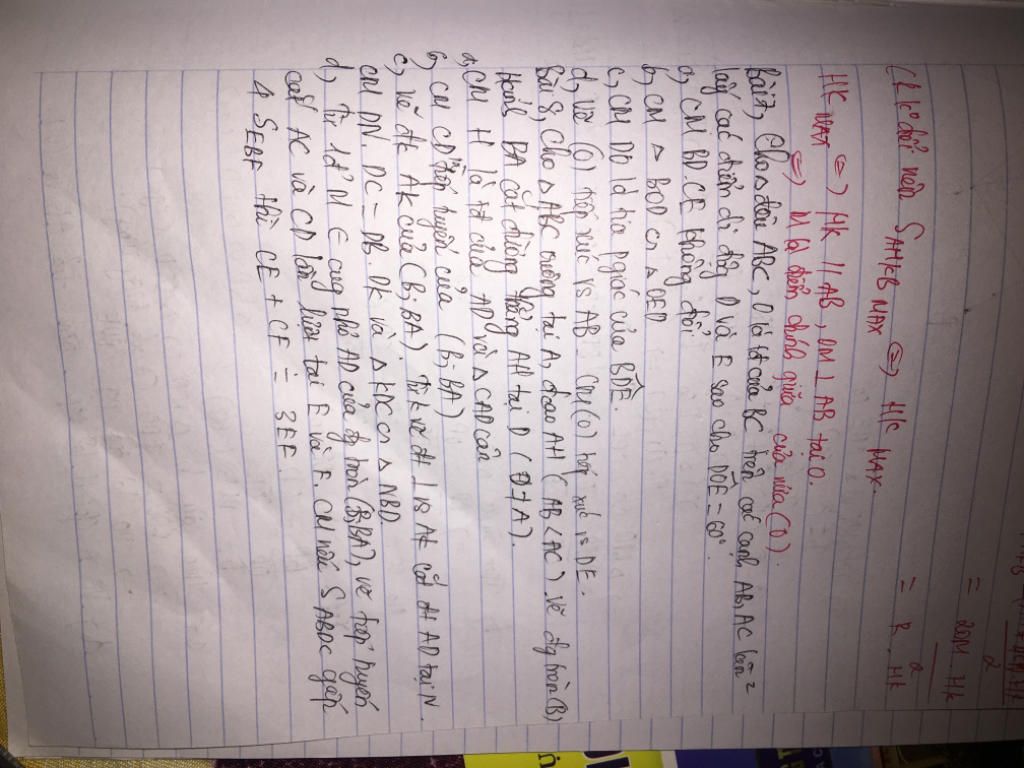 = 2OM.HK
2
= R.HK
R ko đổi nên SAHKB MAX ⇔ HK MAX.
HK MAX ⇔ HK // AB, OM ⊥ AB tại O.
⇔ M là điểm chính giữa của nửa (O).
Bài 7, Cho Δ đều ABC, O là tđ của BC trên các cạnh AB, AC lần 2
lấy các điểm di động D và E sao cho DOE = 60°.
a, CM BD.CE không đổi
b, CM Δ BOD ~ Δ OED
c, CM DO là tia pgiác của BDE.
d, vẽ (O) tiếp xúc vs AB. CM (O) txúc vs DE.
Bài 8, Cho Δ ABC vuông tại A, đcao AH (AB < AC). vẽ đg tròn (B)
bkính BA cắt đường thẳng AH tại D (D≠A).
a, CM H là tđ của AD và Δ CAD cân
b, CM CD tiếp tuyến của (B;BA)
c, vẽ đk AK của (B;BA). Từ K vẽ đt ⊥ vs AK cắt đt AD tại N.
CM DN.DC = DB.DK và Δ KDC ~ Δ NBD.
d, Từ 1 đ' M ∈ cung nhỏ AD của đg tròn (B;BA), vẽ tiếp tuyến
cắt AC và CD lần lượt tại E và F. CM nếu S ABDC gấp
4 SEBF thì CE + CF = 3EF.